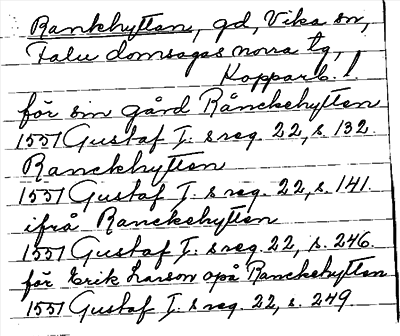 Rankhyttan, gd, Vika sn,
Falu domsagas norra tg,
Kopparb. l.
för sin gård Rånckehytten
1551 Gustaf I:s reg. 22, s. 132.
Ranckhytten
1551 Gustaf I:s reg. 22, s. 141.
ifrå Ranckehytten
1551 Gustaf I:s reg. 22, s. 246.
för Erik Larson opå Ranckehytten
1551 Gustaf I:s reg. 22, s. 249.